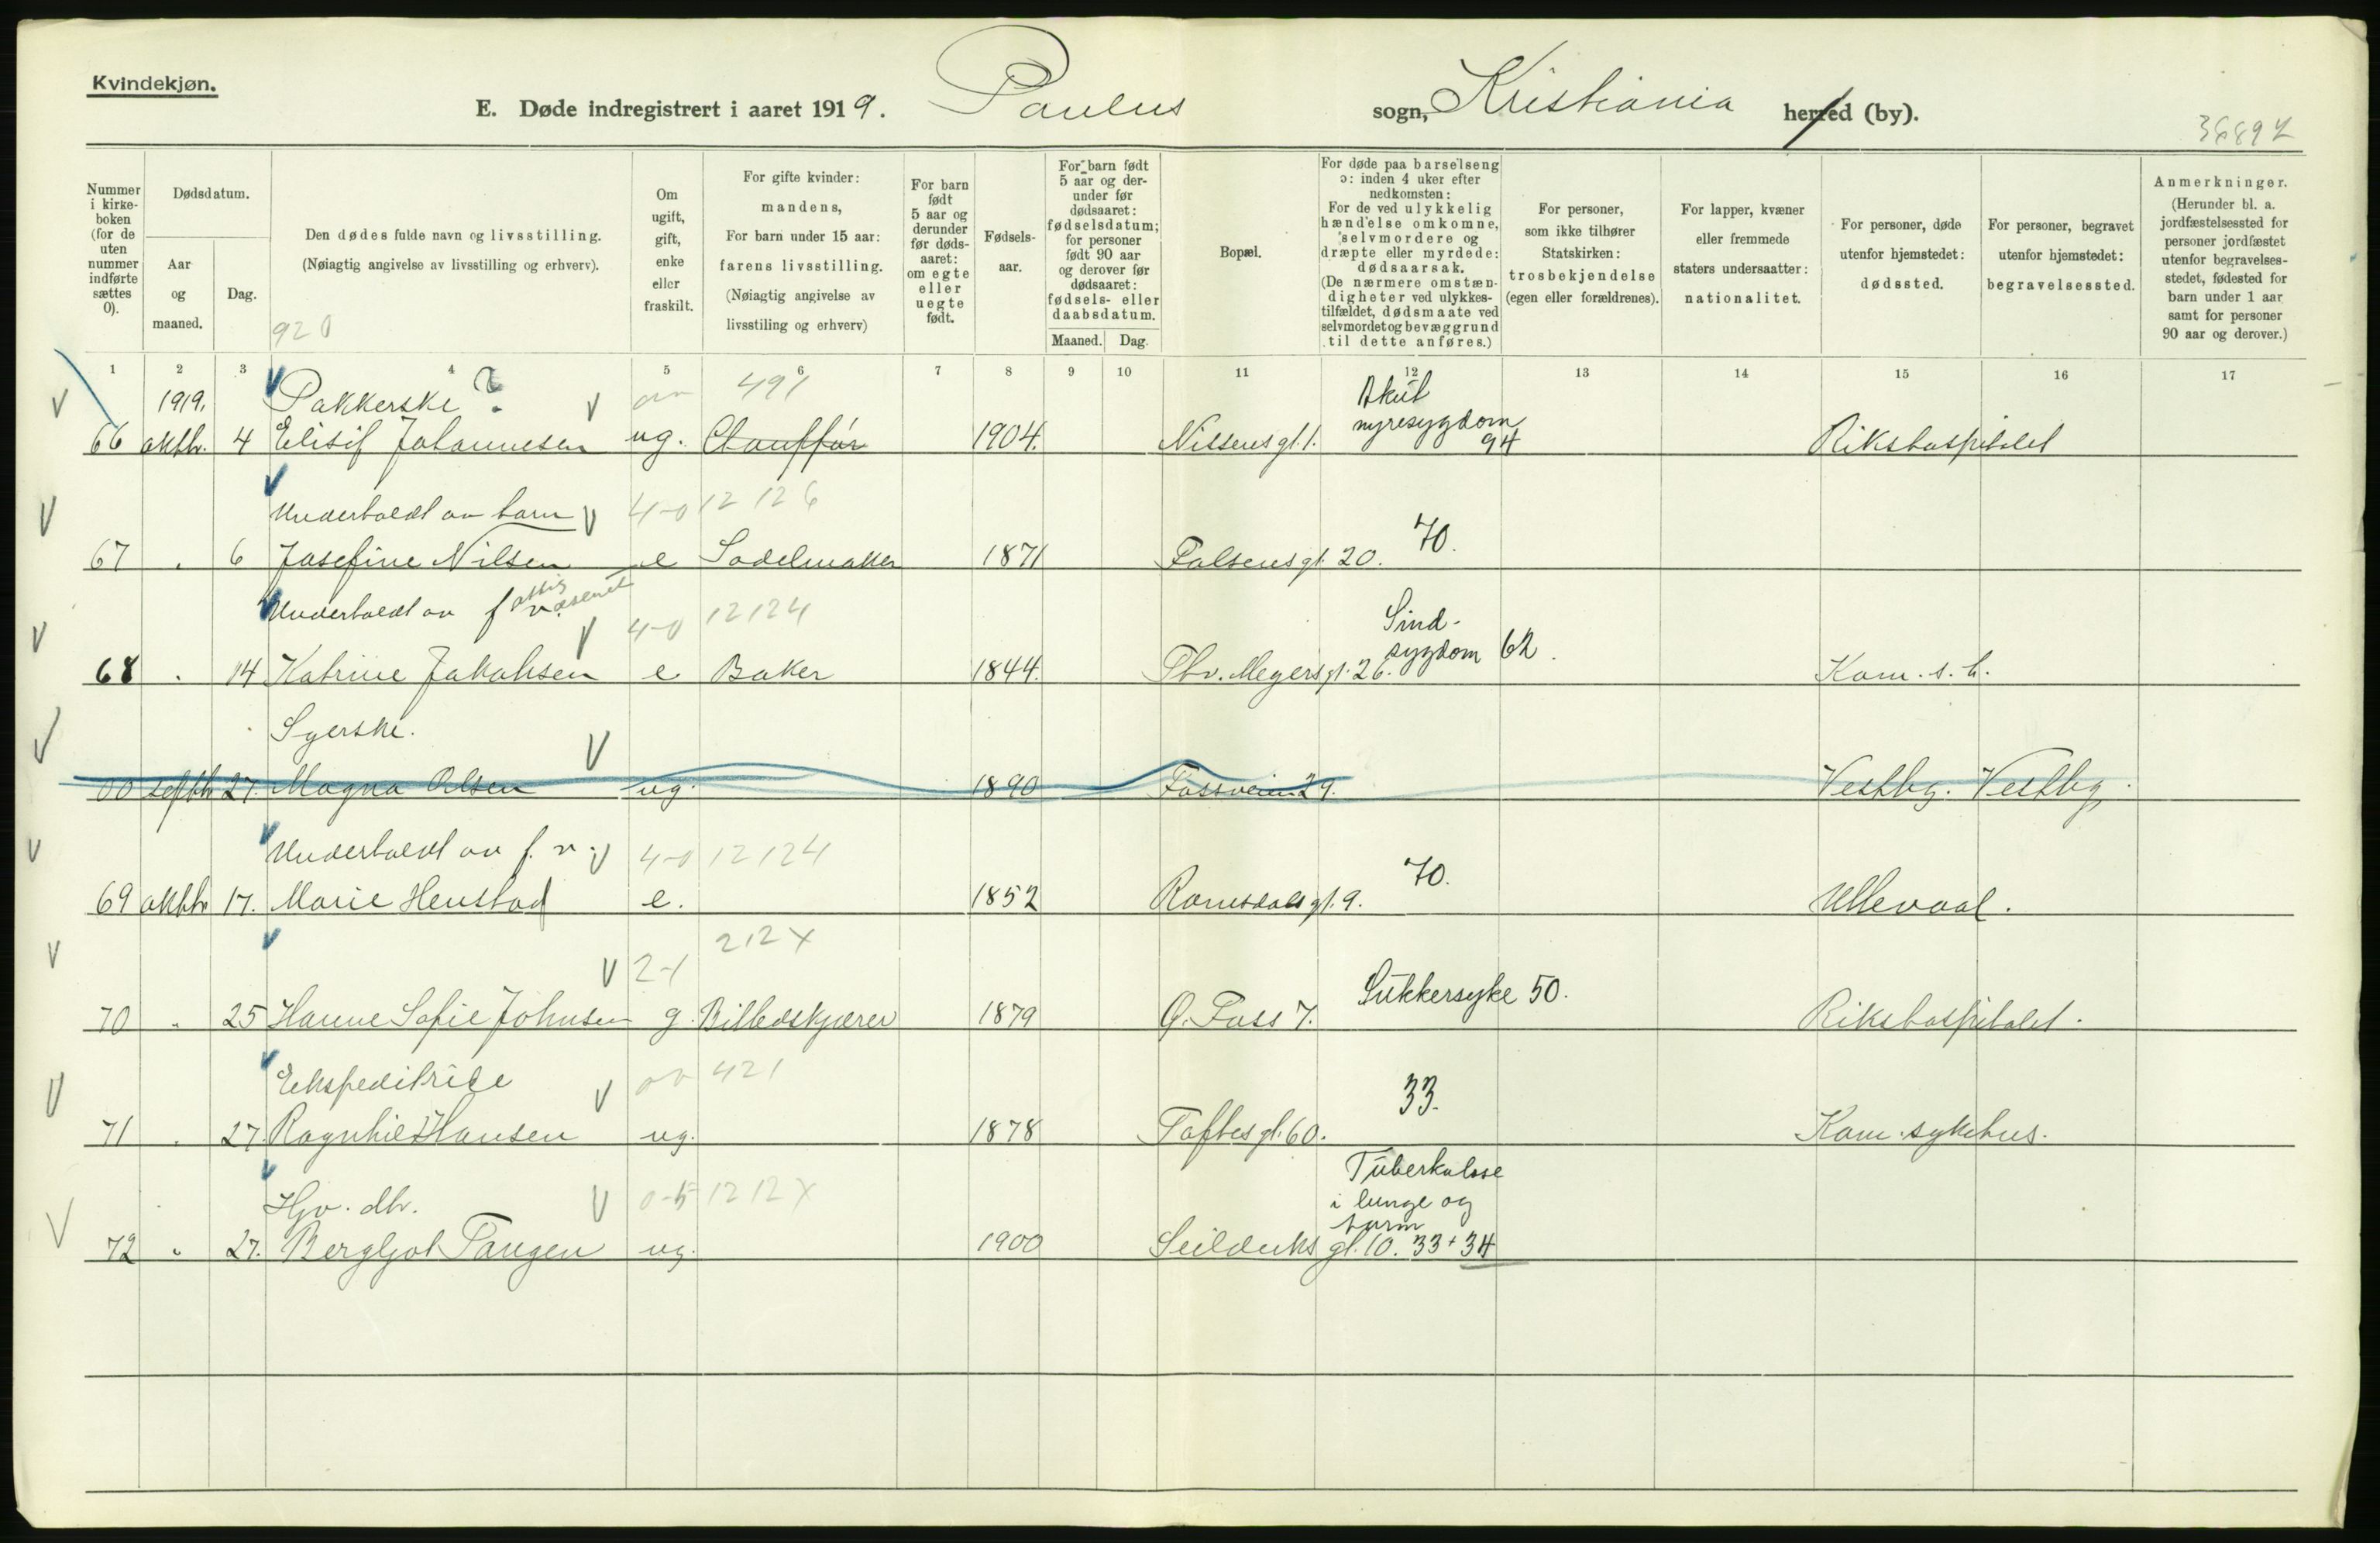 Kvindekjøn.
E. Døde indregistrert i aaret 1919. Paulus sogn, Kristiania herred (by).
36897
Nummer i kirke-boken (for de uten nummer indførte sættes 0).
Dødsdatum.
Aar og maaned.
Dag.
Den dødes fulde navn og livsstilling.
(Nøiagtig angivelse av livsstilling og erhverv).
920
Om ugift, gift, enke eller fraskilt.
For gifte kvinder: mandens,
For barn under 15 aar: farens livsstilling.
(Nøiagtig angivelse av livsstiling og erhverv)
For barn født 5 aar og derunder før døds-aaret: om egte eller uegte født.
Fødsels-aar.
For barn født 5 aar og der-under før dødsaaret: fødselsdatum; for personer født 90 aar og derover før dødsaaret: fødsels- eller daabsdatum.
Maaned. Dag.
Bopæl.
For døde paa barselseng ɔ: inden 4 uker efter nedkomsten:
For de ved ulykkelig hændelse omkomne, selvmordere og dræpte eller myrdede: dødsaarsak.
(De nærmere omstæn-digheter ved ulykkes-tilfældet, dødsmaate ved selvmordet og bevæggrund til dette anføres.)
For personer, som ikke tilhører Statskirken: trosbekjendelse (egen eller forældrenes).
For lapper, kvæner eller fremmede staters undersaatter: nationalitet.
For personer, døde utenfor hjemstedet: dødssted.
For personer, begravet utenfor hjemstedet: begravelsessted.
Anmerkninger.
(Herunder bl. a. jordfæstelsessted for personer jordfæstet utenfor begravelses-stedet, fødested for barn under 1 aar samt for personer 90 aar og derover.)
1 2 3 4 5 6 7 8 9 10 11 12 13 14 15 16 17
1919. Pakkerske ? 491 Akut
66 oktbr. 4 Elisif Johannesen ug. Chauffør 1904. Nissens gt. 1. nyresygdom 94 Rikshospitalet
Underholdt av barn 4-0 12 12 6
67 . 6 Josefine Nilsen e Sadelmaker 1871 Falsens gt. 20. 70.
Underholdt av fattigvæsenet 4-0 12 12 4 Sind-
68 . 14 Katrine Jakobsen e Baker 1844. Thv. Meyers gt. 26. sygdom 62. Kom. s. h.
Syerske.
00 septbr 27. Magna Olsen ug. 1890 Fossveien 29. Vestby. Vestby.
Underholdt av f. v. 4-0 12 12 4
69 oktbr 17. Marie Henstad e. 1852 Romsdals gt. 9. 70. Ullevaal.
2-1 212 X
70 " 25 Hanne Sofie Johnsen g. Billedskjærer 1879 Ø. Foss 7. Sukkersyke 50. Rikshospitalet.
Ekspeditrice 421
71 . 27. Ragnhild Hansen ug. 1878 Toftes gt. 60. 33. Kom. sykehus.
Hjv. dtr. 0-5 12 12 X Tuberkulose i lunge og tarm
72 " 27. Bergljot Tangen ug. 1900 Seilduks gt. 10. 33 + 34